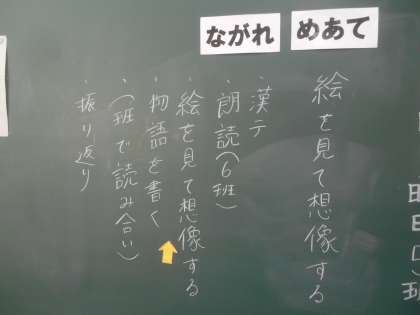 めあて
絵を見て想像する
ながれ
・漢テ
・朗読(6班)
・絵を見て想像する
・物語を書く
・(班で読み合い)
・振り返り